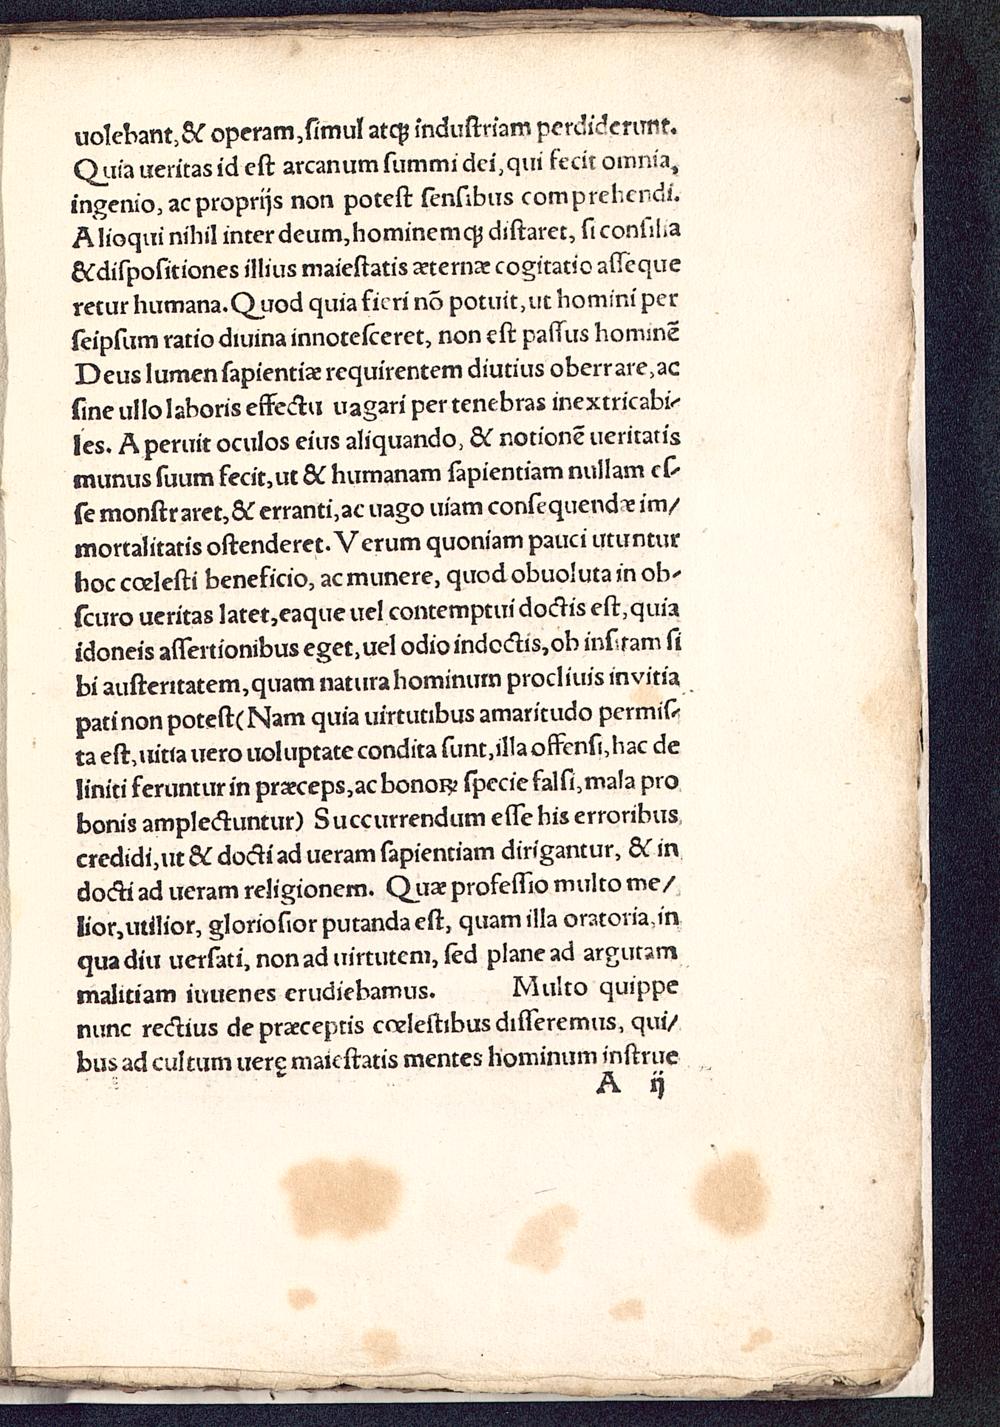 uolebant, & operam, ſimul atqꝫ induſtriam perdiderunt.
Quia ueritas id eſt arcanum ſummi dei, qui fecit omnia,
ingenio, ac proprijs non poteſt ſenſibus comprehendi.
Alioqui nihil inter deum, hominemqꝫ diſtaret, ſi conſilia
& diſpoſitiones illius maieſtatis æternæ cogitatio aſſeque
retur humana. Quod quia fieri nō potuit, ut homini per
ſeipſum ratio diuina innoteſceret, non eſt paſſus hominē
Deus lumen ſapientiæ requirentem diutius oberrare, ac
ſine ullo laboris effectu uagari per tenebras inextricabi-
les. Aperuit oculos eius aliquando, & notionē ueritatis
munus ſuum fecit, ut & humanam ſapientiam nullam eſ-
ſe monſtraret, & erranti, ac uago uiam conſequendæ im/
mortalitatis oſtenderet. Verum quoniam pauci utuntur
hoc cœleſti beneficio, ac munere, quod obuoluta in ob-
ſcuro ueritas latet, eaque uel contemptui doctis eſt, quia
idoneis aſſertionibus eget, uel odio indoctis, ob inſitam ſi
bi auſteritatem, quam natura hominum procliuis in vitia
pati non poteſt (Nam quia uirtutibus amaritudo permiſ-
ta eſt, uitia uero uoluptate condita ſunt, illa offenſi, hac de
liniti feruntur in præceps, ac bonoꝝ ſpecie falſi, mala pro
bonis amplectuntur) Succurrendum eſſe his erroribus
credidi, ut & docti ad ueram ſapientiam dirigantur, & in
docti ad ueram religionem. Quæ profeſſio multo me/
lior, utilior, glorioſior putanda eſt, quam illa oratoria, in
qua diu uerſati, non ad uirtutem, ſed plane ad argutam
malitiam iuuenes erudiebamus. Multo quippe
nunc rectius de præceptis cœleſtibus diſſeremus, qui/
bus ad cultum uerę maieſtatis mentes hominum inſtrue
A ij